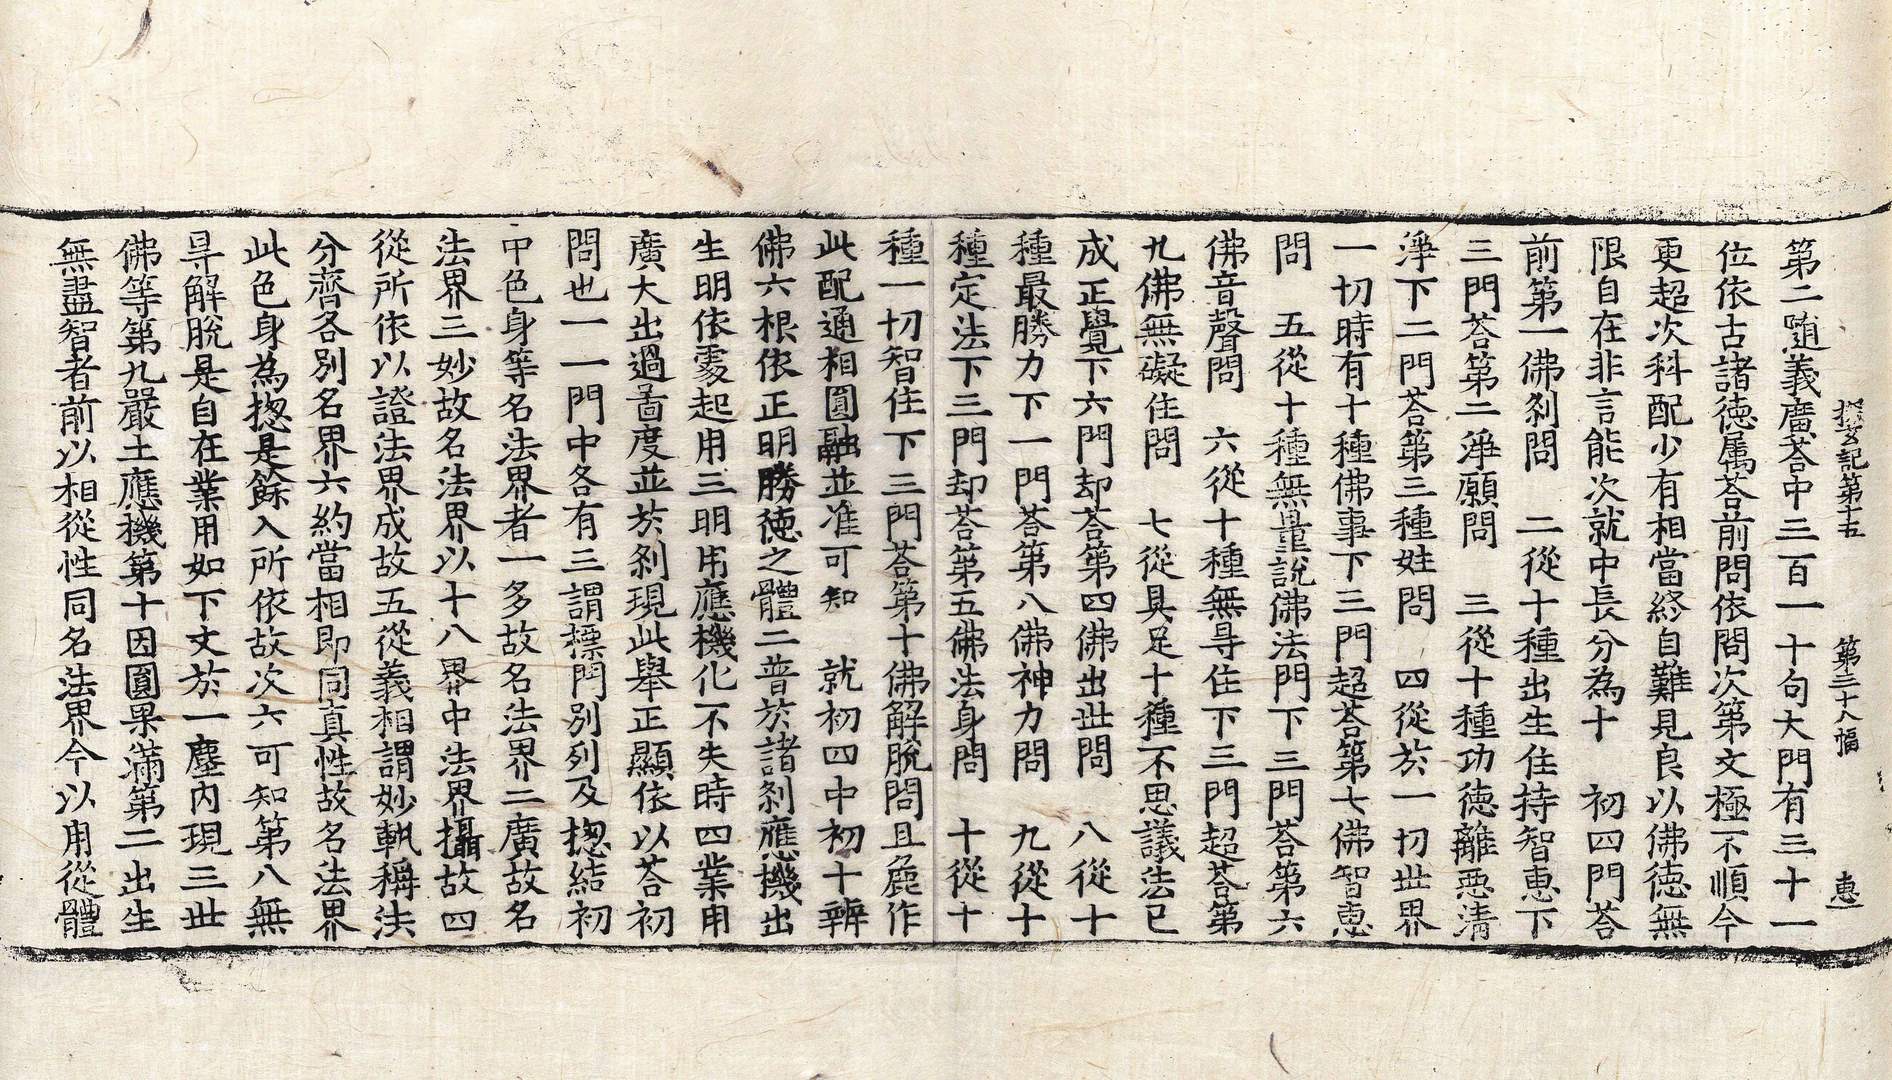 探玄記第十五　第三十八幅　惠
第二隨義廣荅中三百一十句大門有三十一
位依古諸徳属荅前問依問次第文極不順今
更超次科配少有相當終自難見良以佛徳無
限自在非言能次就中長分為十　初四門荅
前第一佛刹問　二從十種出生住持智惠下
三門荅第二淨願問　三從十種功徳離惡清
淨下二門荅第三種姓問　四從於一切世界
一切時有十種佛事下三門超荅第七佛智惠
問　五從十種無量說佛法門下三門荅第六
佛音聲問　六從十種無㝵住下三門超荅第
九佛無礙住問　七從具足十種不思議法已
成正覺下六門却荅第四佛出世問　八從十
種最勝力下一門荅第八佛神力問　九從十
種定法下三門却荅第五佛法身問　十從十
種一切智住下三門荅第十佛解脫問且麁作
此配通相圓融並准可知　就初四中初十辨
佛六根依正明勝徳之體二普於諸刹應機出
生明依處起用三明用應機化不失時四業用
廣大出過啚度並於刹現此舉正顯依以荅初
問也一一門中各有三謂標門別列及揔結初
中色身等名法界者一多故名法界二廣故名
法界三妙故名法界以十八界中法界攝故四
從所依以證法界成故五從義相謂妙軌稱法
分齊各別名界六約當相即同真性故名法界
此色身為揔是餘入所依故次六可知第八無
㝵解脫是自在業用如下文於一塵內現三世
佛等第九嚴土應機第十因圓果滿第二出生
無盡智者前以相從性同名法界今以用從體